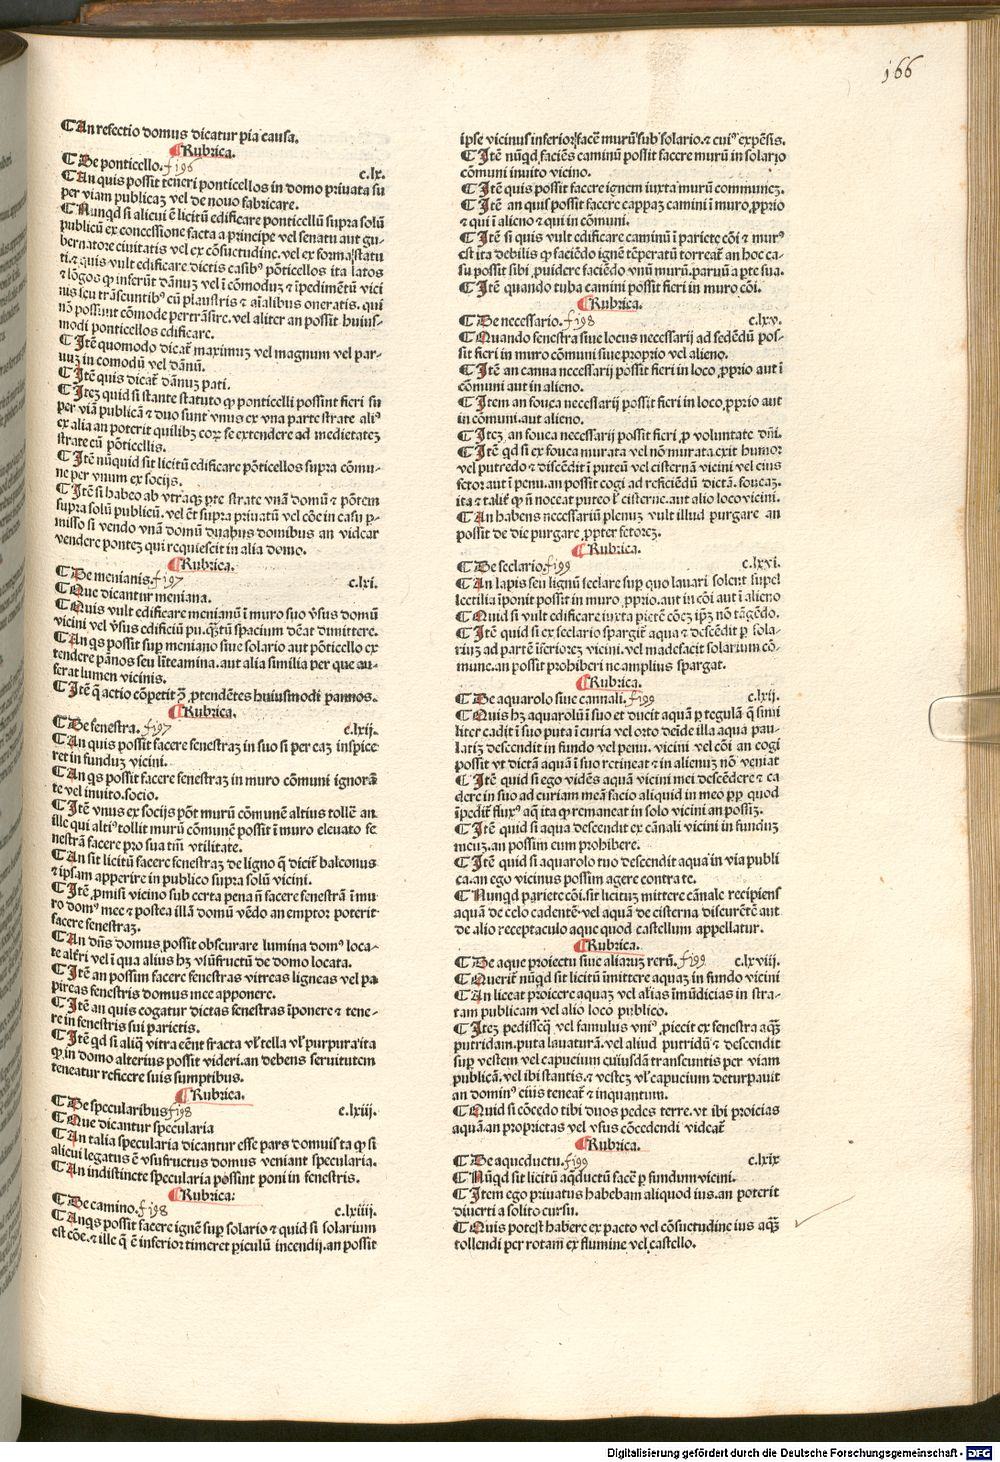 166
¶ An refectio domus dicatur pia causa.
¶ Rubrica.
¶ De ponticello. f 196 c.lx.
¶ An quis possit teneri ponticellos in domo priuata su
per viam publicaʒ vel de nouo fabricare.
¶ Nunqd si alicui ē licitū edificare ponticellū supra solū
publicū ex concessione facta a principe vel senatu aut gu-
bernatore ciuitatis vel ex cōsuetudine. vel ex forma statu
ti. ⁊ quis vult edificare dictis casibꝰ pōticellos ita latos
⁊ lōgos ꝙ inferūt dānuʒ vel icōmoduʒ ⁊ īpedimētū vici
nis seu trāseuntibꝰ cū plaustris ⁊ aīalibus oneratis. qui
nō possunt cōmode pertrāsire. vel aliter an possit huius-
modi ponticellos edificare.
¶ Itē quomodo dicat̄ maximuʒ vel magnum vel par-
uuʒ in comodū vel dānū.
¶ Itē quis dicat̄ dānuʒ pati.
¶ Iteʒ quid si stante statuto ꝙ ponticelli possint fieri su
per viā publicā ⁊ duo sunt vnus ex vna parte strate aliꝰ
ex alia an poterit quilibʒ coꝝ se extendere ad medietateʒ
strate cū pōticellis.
¶ Itē nūquid sit licitū edificare pōticellos supra cōmu-
ne per vnum ex socijs.
¶ Itē si habeo ab vtraqʒ pte strate vnā domū ⁊ pōtem
supra solū publicū. vel ēt supra priuatū vel cōe in casu p-
misso si vendo vnā domū duabus domibus an videar
vendere ponteʒ qui requiescit in alia domo.
¶ Rubrica.
¶ De menianis. f 197 c.lxi.
¶ Que dicantur meniana.
¶ Quis vult edificare menianū ī muro suo v̄sus domū
vicini vel v̄sus edificiū pu. qʒtū spacium dēat dimittere.
¶ An qs possit suꝑ meniano siue solario aut pōticello ex
tendere pānos seu līteamina. aut alia similia per que au-
ferat lumen vicinis.
¶ Itē q̄ actio cōpetit ꝯ̄ ꝓtendētes huiusmodi pannos.
¶ Rubrica.
¶ De fenestra. f 197 c.lxij.
¶ An quis possit facere fenestraʒ in suo si per eaʒ inspice
ret in funduʒ vicini.
¶ An qs possit facere fenestraʒ in muro cōmuni ignorā
te vel inuito. socio.
¶ Itē vnus ex socijs pōt murū cōmunē altius tollē̄ an
ille qui altiꝰ tollit murū cōmunē possit ī muro eleuato fe
nestrā facere pro sua tm̄ vtilitate.
¶ An sit licitū facere fenestraʒ de ligno q̄ dicit̄ balconus
⁊ ipsam apperire in publico supra solū vicini.
¶ Itē ꝓmisi vicino sub certa pena n̄ facere fenestrā ī mu
ro domꝰ mee ⁊ postea illā domū vēdo an emptor poterit
facere fenestraʒ.
¶ An dn̄s domus possit obscurare lumina domꝰ loca-
te alt̄i vel ī qua alius hʒ vsūfructū de domo locata.
¶ Itē an possim facere fenestras vitreas ligneas vel pa
pireas fenestris domus mee apponere.
¶ Itē an quis cogatur dictas fenestras īponere ⁊ tene-
re in fenestris sui parietis.
¶ Itē qd si aliq̄ vitra eēnt fracta vl̄ tella vl̄ purpura ita
ꝙ. in domo alterius possit videri. an debens seruitutem
teneatur reficere suis sumptibus.
¶ Rubrica.
¶ De specularibus f 198 c.lxiij.
¶ Que dicantur specularia
¶ An talia specularia dicantur esse pars domus ita ꝙ si
alicui legatus ē vsufructus domus veniant specularia.
¶ An indistincte specularia possint poni in fenestris.
¶ Rubrica:
¶ De camino. f 198 c.lxiiij.
¶ An qs possit facere ignē suꝑ solario ⁊ quid si solarium
est cōe. ⁊ ille q̄ ē inferior timeret ꝑiculū incendij. an possit
ipse vicinus inferior facē̄ murū sub solario. ⁊ cuiꝰ expēsis.
¶ Itē nūqd faciēs caminū possit facere murū in solario
cōmuni inuito vicino.
¶ Itē quis possit facere ignem iuxta murū communeʒ.
¶ Itē an quis possit facere cappaʒ camini ī muro ꝓprio
⁊ qui ī alieno ⁊ qui in cōmuni.
¶ Itē si quis vult edificare caminū ī pariete cōi ⁊ murꝰ
est ita debilis ꝙ faciēdo ignē tēperatū torreat̄ an hoc ca-
su possit sibi ꝓuidere faciēdo vnū murū. paruū a ꝑte sua.
¶ Itē quando tuba camini possit fieri in muro cōi.
¶ Rubrica.
¶ De necessario. f 198 c.lxv.
¶ Quando fenestra siue locus necessarij ad sedēdū pos-
sit fieri in muro cōmuni siue proprio vel alieno.
¶ Itē an canna necessarij possit fieri in loco ꝓprio aut ī
cōmuni aut in alieno.
¶ Item an fouea necessarij possit fieri in loco ꝓprio aut
in cōmuni. aut alieno.
¶ Iteʒ an fouea necessarij possit fieri ꝓ voluntate dn̄i.
¶ Itē qd si ex fouea murata vel nō murata exit humor
vel putredo ⁊ discēdit ī puteū vel cisternā vicini vel eius
fetor aut ī penu. an possit cogi ad reficiēdū dictā. foueaʒ.
ita ⁊ talit̄ ꝙ n̄ noceat puteo l̄ cisterne. aut alio loco vicini.
¶ An habens necessariū plenuʒ vult illud purgare an
possit de die purgare ꝓpter fetoreʒ.
¶ Rubrica.
¶ De seclario. f 199 c.lxvi.
¶ An lapis seu lignū seclare suꝑ quo lauari solent supel
lectilia īponit possit in muro ꝓprio. aut in cōi aut ī alieno
¶ Quid si vult edificare iuxta pietē cōeʒ ipʒ nō tāgēdo.
¶ Itē quid si ex seclario spargit̄ aqua ⁊ descēdit ꝑ sola-
riuʒ ad partē īferioreʒ vicini. vel madefacit solarium cō-
mune. an possit prohiberi ne amplius spargat.
¶ Rubrica.
¶ De aquarolo siue cannali. f 199 c.lxij.
¶ Quis hʒ aquarolū ī suo et ducit aquā ꝑ tegulā q̄ simi
liter cadit ī suo puta ī curia vel orto deīde illa aqua pau-
latiʒ descendit in fundo vel penu. vicini vel cōi an cogi
possit vt dictā aquā ī suo retineat ⁊ in alienuʒ nō veniat
¶ Itē quid si ego vidēs aquā vicini mei descēdere ⁊ ca
dere in suo ad curiam meā facio aliquid in meo ꝓp̄ quod
īpedit̄ fluxꝰ aq̄ ita ꝙ remaneat in solo vicini an possiʒ.
¶ Itē quid si aqua descendit ex cānali vicini in funduʒ
meuʒ. an possim eum prohibere.
¶ Itē quid si aquarolo tuo descendit aqua in via publi
ca. an ego vicinus possim agere contra te.
¶ Nunqd pariete cōi. sit licituʒ mittere cānale recipiens
aquā de celo cadentē. vel aquā de cisterna discurētē aut
de alio receptaculo aque quod castellum appellatur.
¶ Rubrica.
¶ De aque proiectu siue aliaruʒ rerū. f 199 c.lxviij.
¶ Querit̄ nūqd sit licitū īmittere aquaʒ in fundo vicini
¶ An liceat proicere aquaʒ vel al̄ias īmūdicias in stra-
tam publicam vel alio loco publico.
¶ Iteʒ pedissēq̄ vel famulus vniꝰ ꝓiecit ex fenestra aqʒ̄
putridam. puta lauaturā. vel aliud putridū ⁊ descendit
suꝑ vestem vel capucium cuiusdā transeuntis per viam
publicā. vel ibi stantis. ⁊ vesteʒ vl̄ capucium deturpauit
an dominꝰ eius teneat̄ ⁊ inquantum.
¶ Quid si cōcedo tibi duos pedes terre. vt ibi proicias
aquā an proprietas vel vsus cōcedendi videat̄
¶ Rubrica.
¶ De aqueductu. f 199 c.lxix
¶ Nūqd sit licitū aq̄ductū facē̄ ꝑ fundum vicini.
¶ Item ego priuatus habebam aliquod ius. an poterit
diuerti a solito cursu.
¶ Quis potest habere ex pacto vel cōsuetudine ius aqʒ̄
tollendi per rotam ex flumine vel castello.
Digitalisierung gefördert durch die Deutsche Forschungsgemeinschaft - DFG